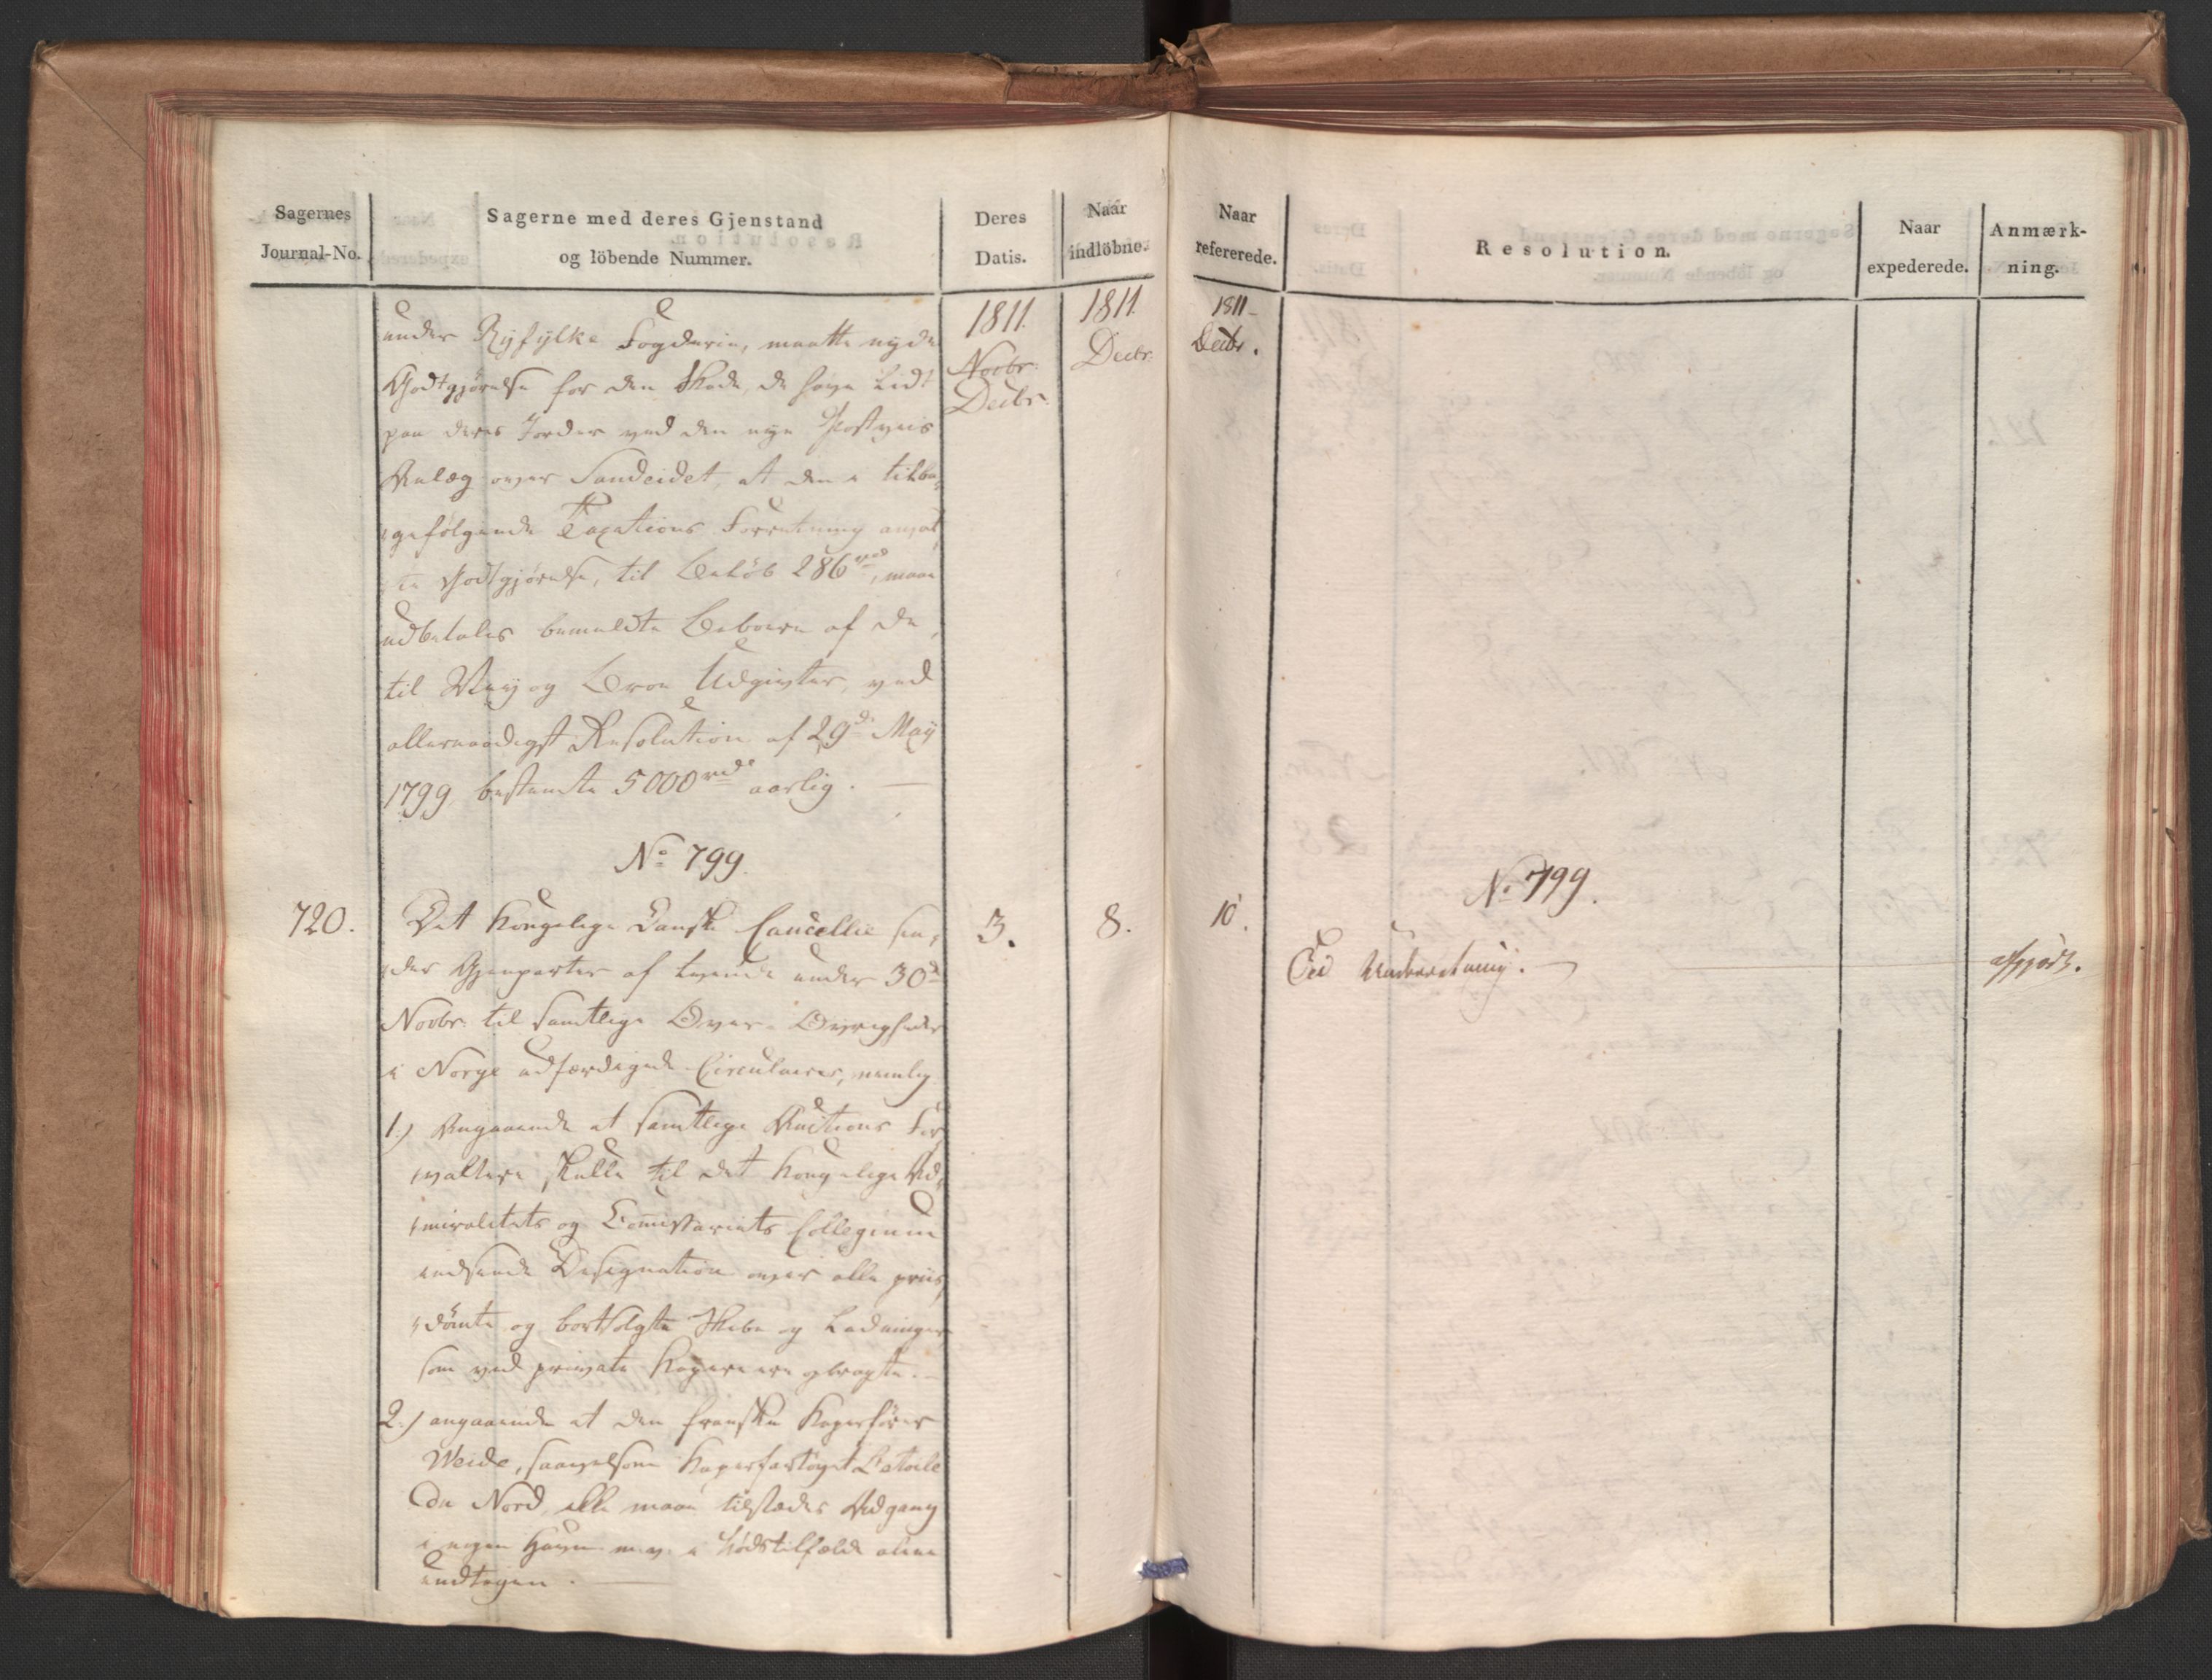 Sagernes
Journal-No.
Sagerne med deres Gjenstand
og löbende Nummer.
Deres
Datis.
Naar
indlöbne.
1811.
Novbr.
Decbr.
1811
Decbr.
under Ryfylke Fogderie, maatte nyde
Godtgjörelse for den Skade, de have Lidt
paa deres Jorder ved den nye Postveis
Anlæg over Sandeidet, at den i tilba-
gefölgende Taxations Forretning ansat-
te Godtgjörelse, til Belöb 286 rd, maae
udbetales bemeldte Beboere af de,
til Vey og Broe Udgivter, ved
allernaadigst Resolution af 29de May
1799, bestemte 5000 rd aarlig. —
No 799.
720.
Det Kongelige Danske Cancellie sen-
der Gjenparter af tvende under 30d
Novbr. til samtlige Over-Övrigheder
i Norge udfærdigede Circulairer, nemlig
1.) Angaaende at samtlige Auctions For-
valtere skulle til det Kongelige Ad-
miralitets og Comissariats Collegium
indsende Designation over alle priis-
dömte og bortsolgte Skibe og Ladninger
som ved private Kapere ere opbragte. —
2.) angaaende at den franske Kaperförer
Weide, saavelsom Kaperfartöyet L'etoile
du Nord, ikke maae tilstædes Adgang
i nogen Havn i Nödstilfælde alene
undtagen. —
3.
8.
Naar
refererede.
Resolution.
Naar
expederede.
Anmærk-
ning.
1811
Decbr.
10.
No 799.
Til Underretning. —
afgjort.